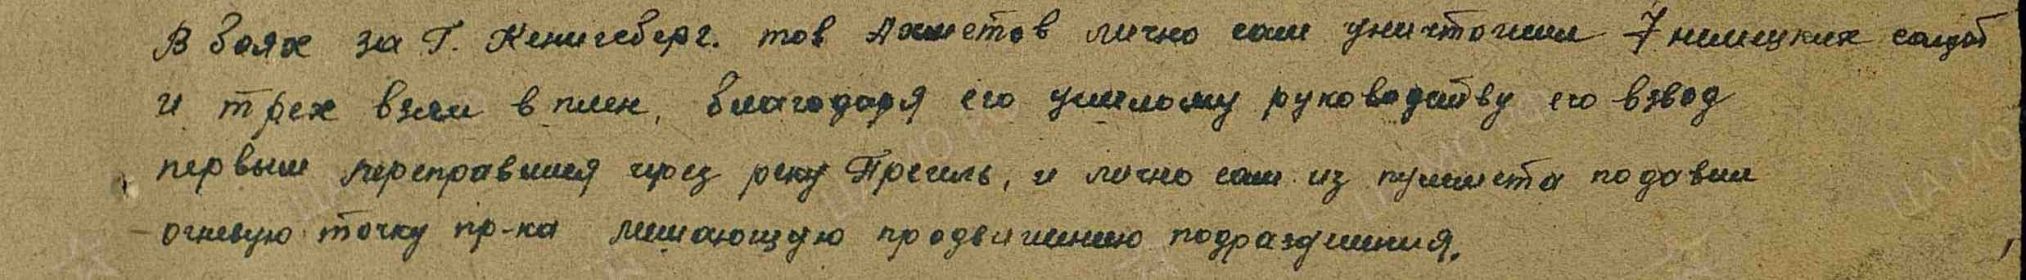 В боях за г. Кенигсберг. тов Ахметов лично сам уничтожил 7 немецких солдат
и трех взял в плен, благодаря его умелому руководству его взвод
первым переправился через реку Прегель, и лично сам из пулемета подавил
огневую точку пр-ка мешающую продвижению подразделения.